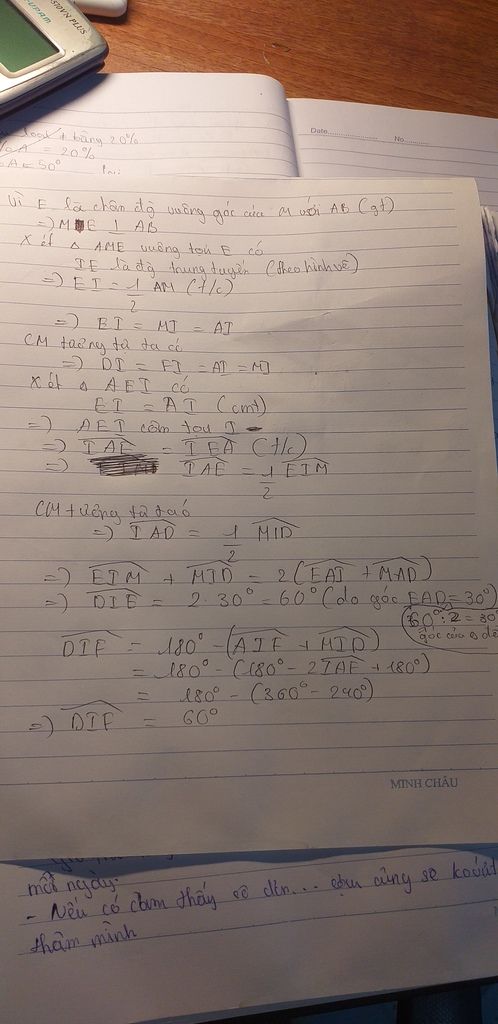 570VN PLUS
+ bằng 20%
% A = 20%
A = 50°
Date
No
Vì E là chân đg vuông góc của M với AB (gt)
=) ME ⊥ AB
Xét Δ AME vuông tại E có
IE là đg trung tuyến (theo hình vẽ)
=) EI = 1/2 AM (t/c)
=) EI = MI = AI
CM tương tự ta có
=) DI = FI = AI = MI
Xét Δ AEI có
EI = AI (cmt)
=) AEI cân tại I
=) IAE = IEA (t/c)
=) IAE = 1/2 EIM
CM tương tự ta có
=) IAD = 1/2 MID
=) EIM + MID = 2(EAI + MAD)
=) DIE = 2.30° = 60° (do góc EAD = 30°)
60° : 2 = 30°
góc của Δ đề
DIF = 180° - (AIF + MID)
= 180° - (180° - 2IAF + 180°)
= 180° - (360° - 240°)
=) DIF = 60°
MINH CHÂU
mỗi ngày.
- Nếu có cảm thấy cô đơn... cậu cũng sẽ
thâm mình